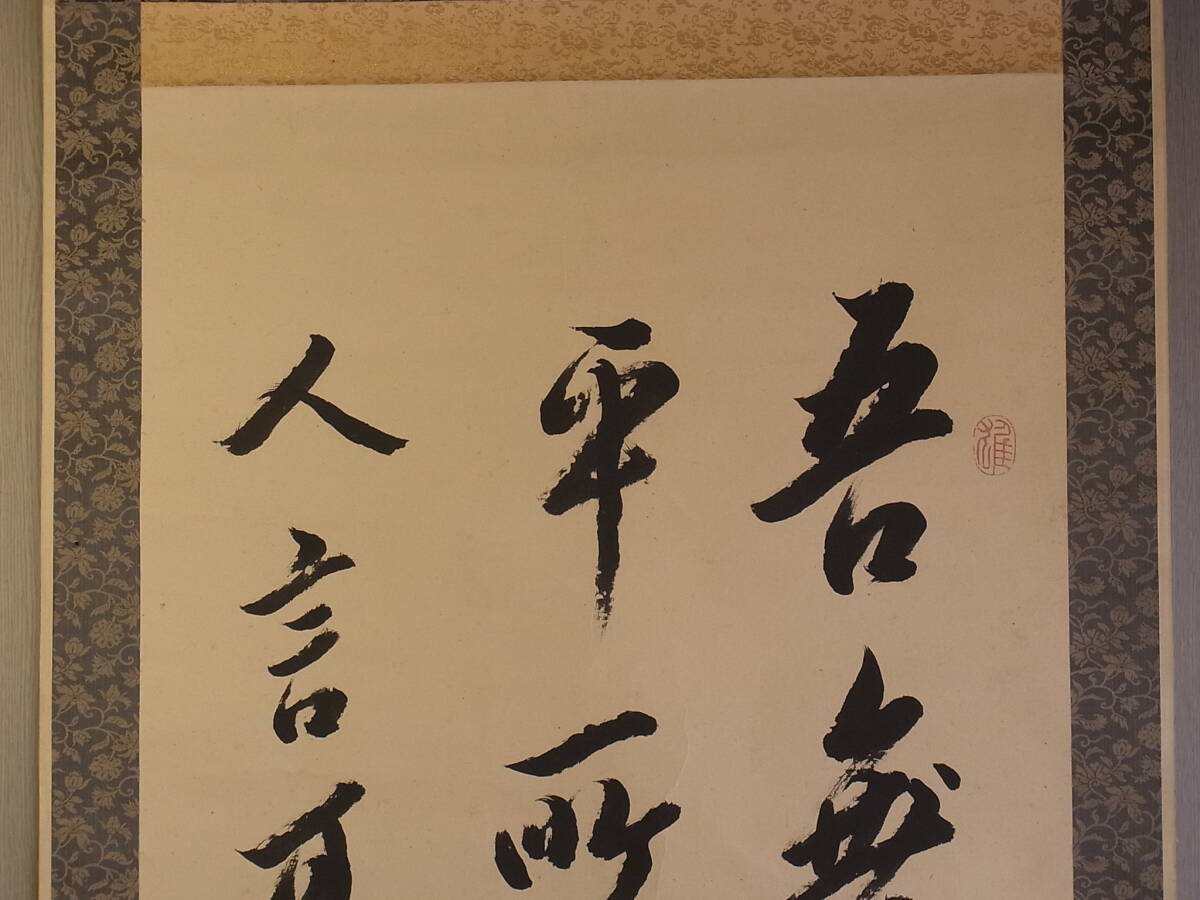 吾無
平所
人言